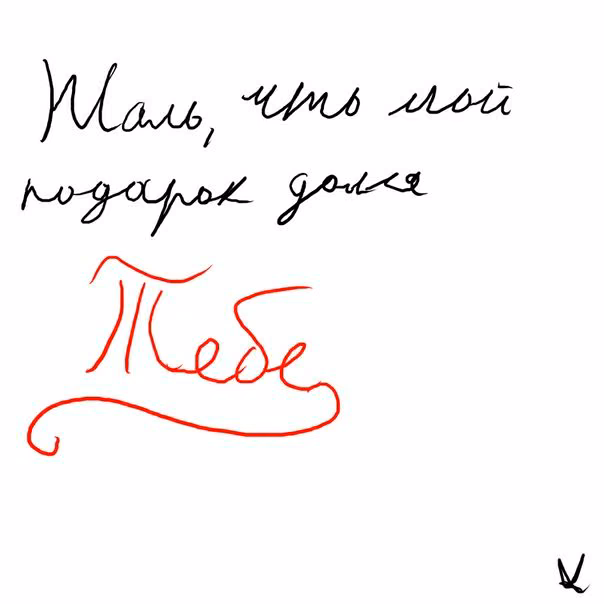 Жаль, что мой
подарок
Тебе